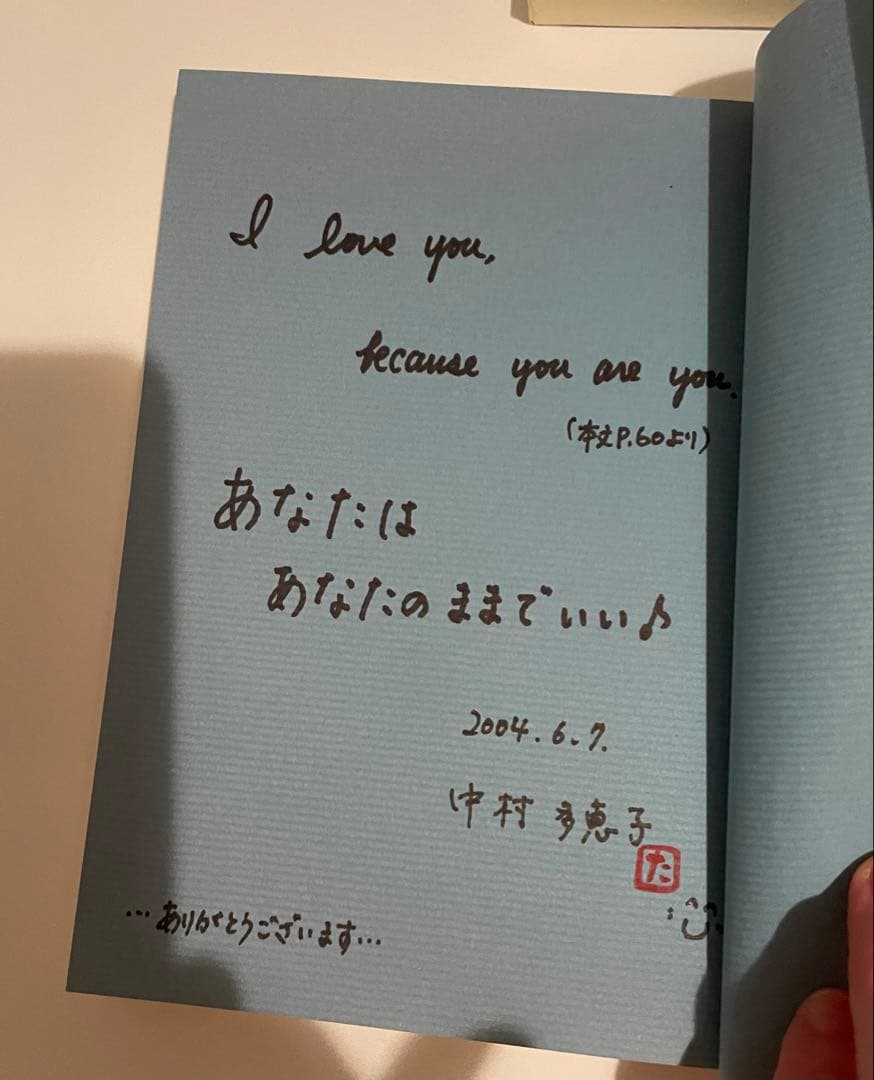 I love you,
because you are you.
(本文P.60より)
あなたは
あなたのままでいい♪
2004.6.7.
中村 多恵子
た
…ありがとうございます…